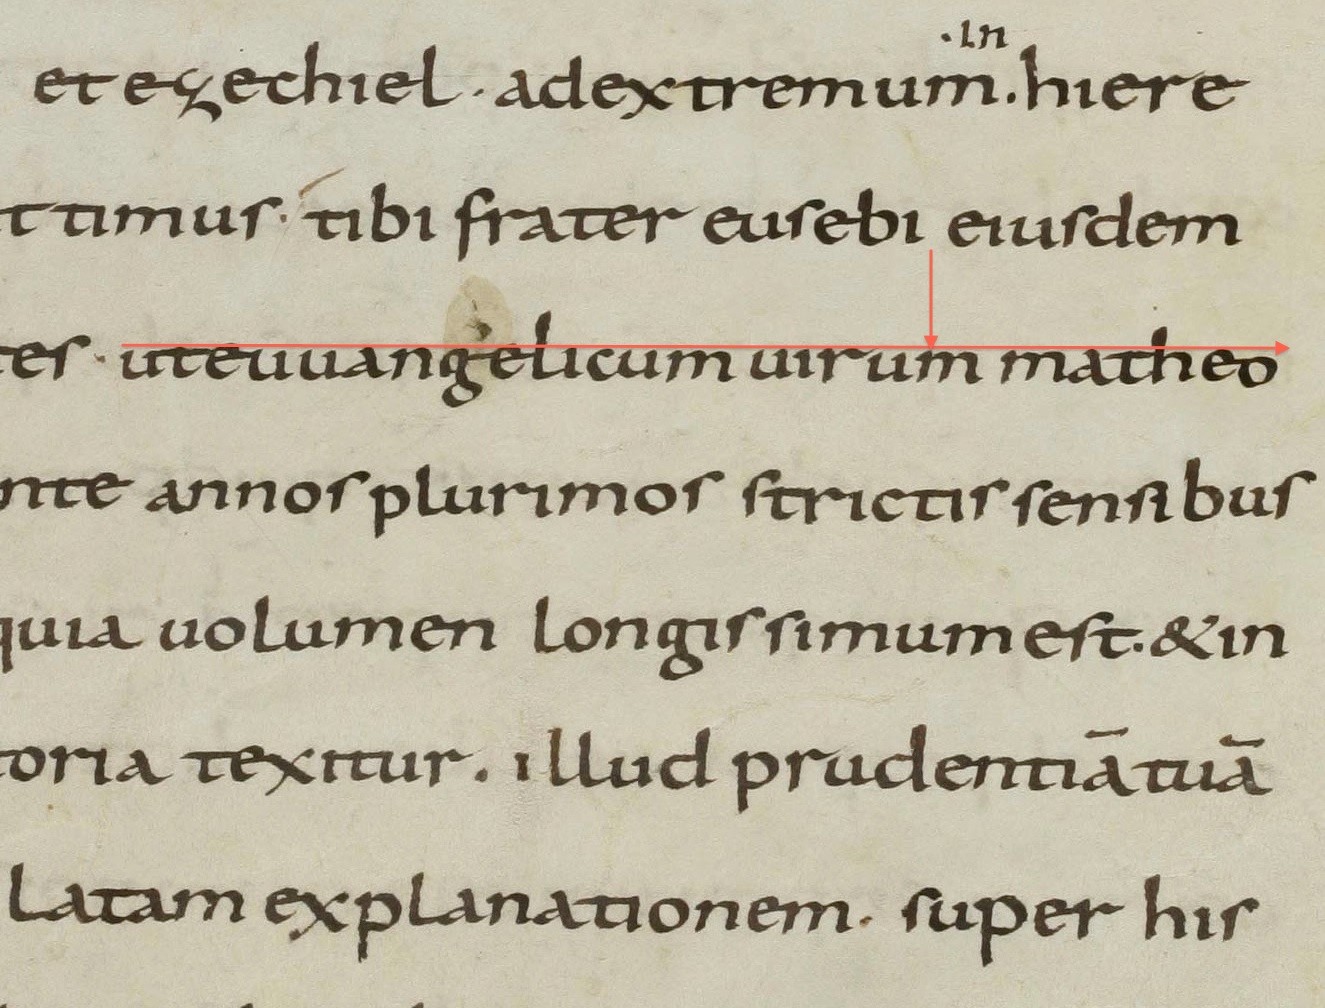 ·in
et ezechiel · adextremum. hiere
ttimus · tibi frater eusebi eiusdem
ter · uteuuangelicum uirum matheo
nte annos plurimos strictis sensibus
quia uolumen longissimum est. & in
toria texitur. illud prudentiā tuā
latam explanationem. super his